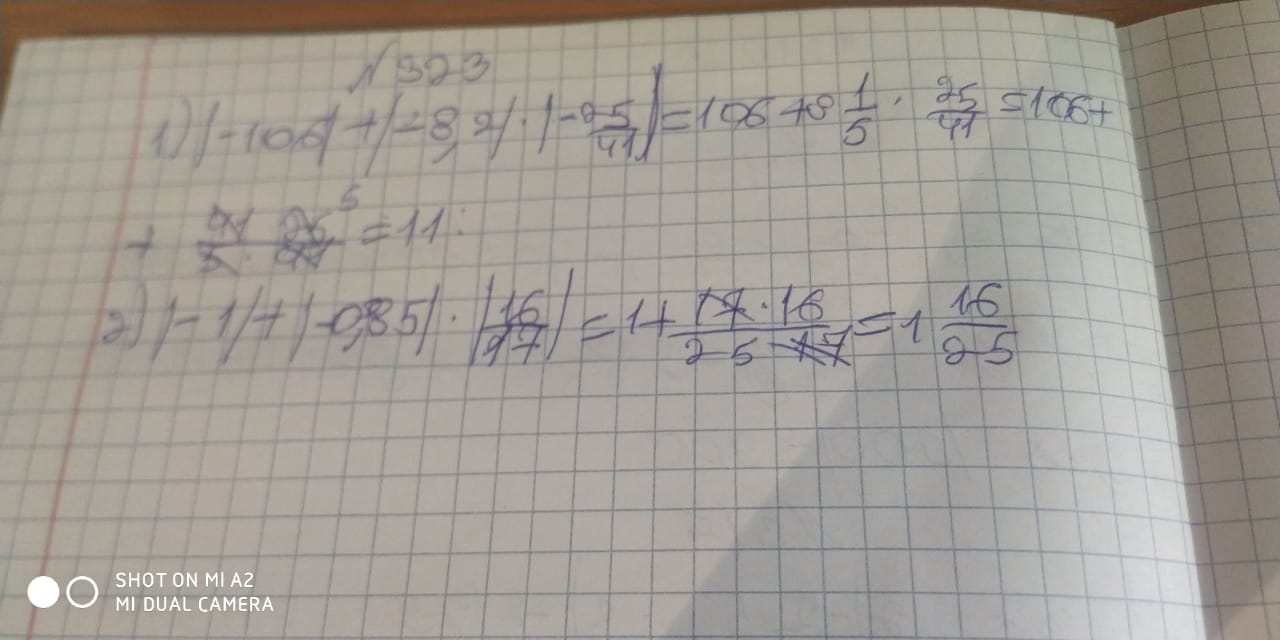 №323
1) |-106| + |-8,2| · |-25/41| = 106 + 8 1/5 · 25/41 = 106 +
+ 41 · 25 5 / 5 · 41 = 11:
2) |-1| + |-0,85| · |16/17| = 1 + 17 · 16 / 25 · 17 = 1 16/25
SHOT ON MI A2
MI DUAL CAMERA